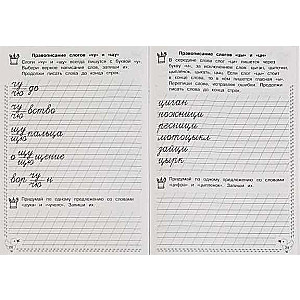 Правописание слогов «чу» и «щу»
Слоги «чу» и «щу» всегда пишутся с буквой «у».
Выбери верное написание слов, запиши их.
Продолжи писать слова до конца строк.
чу
чю до
чу
чю вство
щу
щю пальца
о щу
щю щение
вор чу
чю н
Придумай по одному предложению со словами
Запиши их.
Правописание слогов «цы» и «ци»
В середине слова слог «ци» пишется через
букву «и», за исключением слов: цыган, цыпочки,
цыплёнок, цыкать, цыц. Если слог «цы» стоит
в конце слова, то в нём пишется гласная «ы».
Перепиши слова, исправляя ошибки. Продолжи
писать слова до конца строк.
циган
ножници
ресници
мотоцыкл
зайци
цырк
Придумай по одному предложению со словами
«цифра» и «цыплёнок». Запиши их.